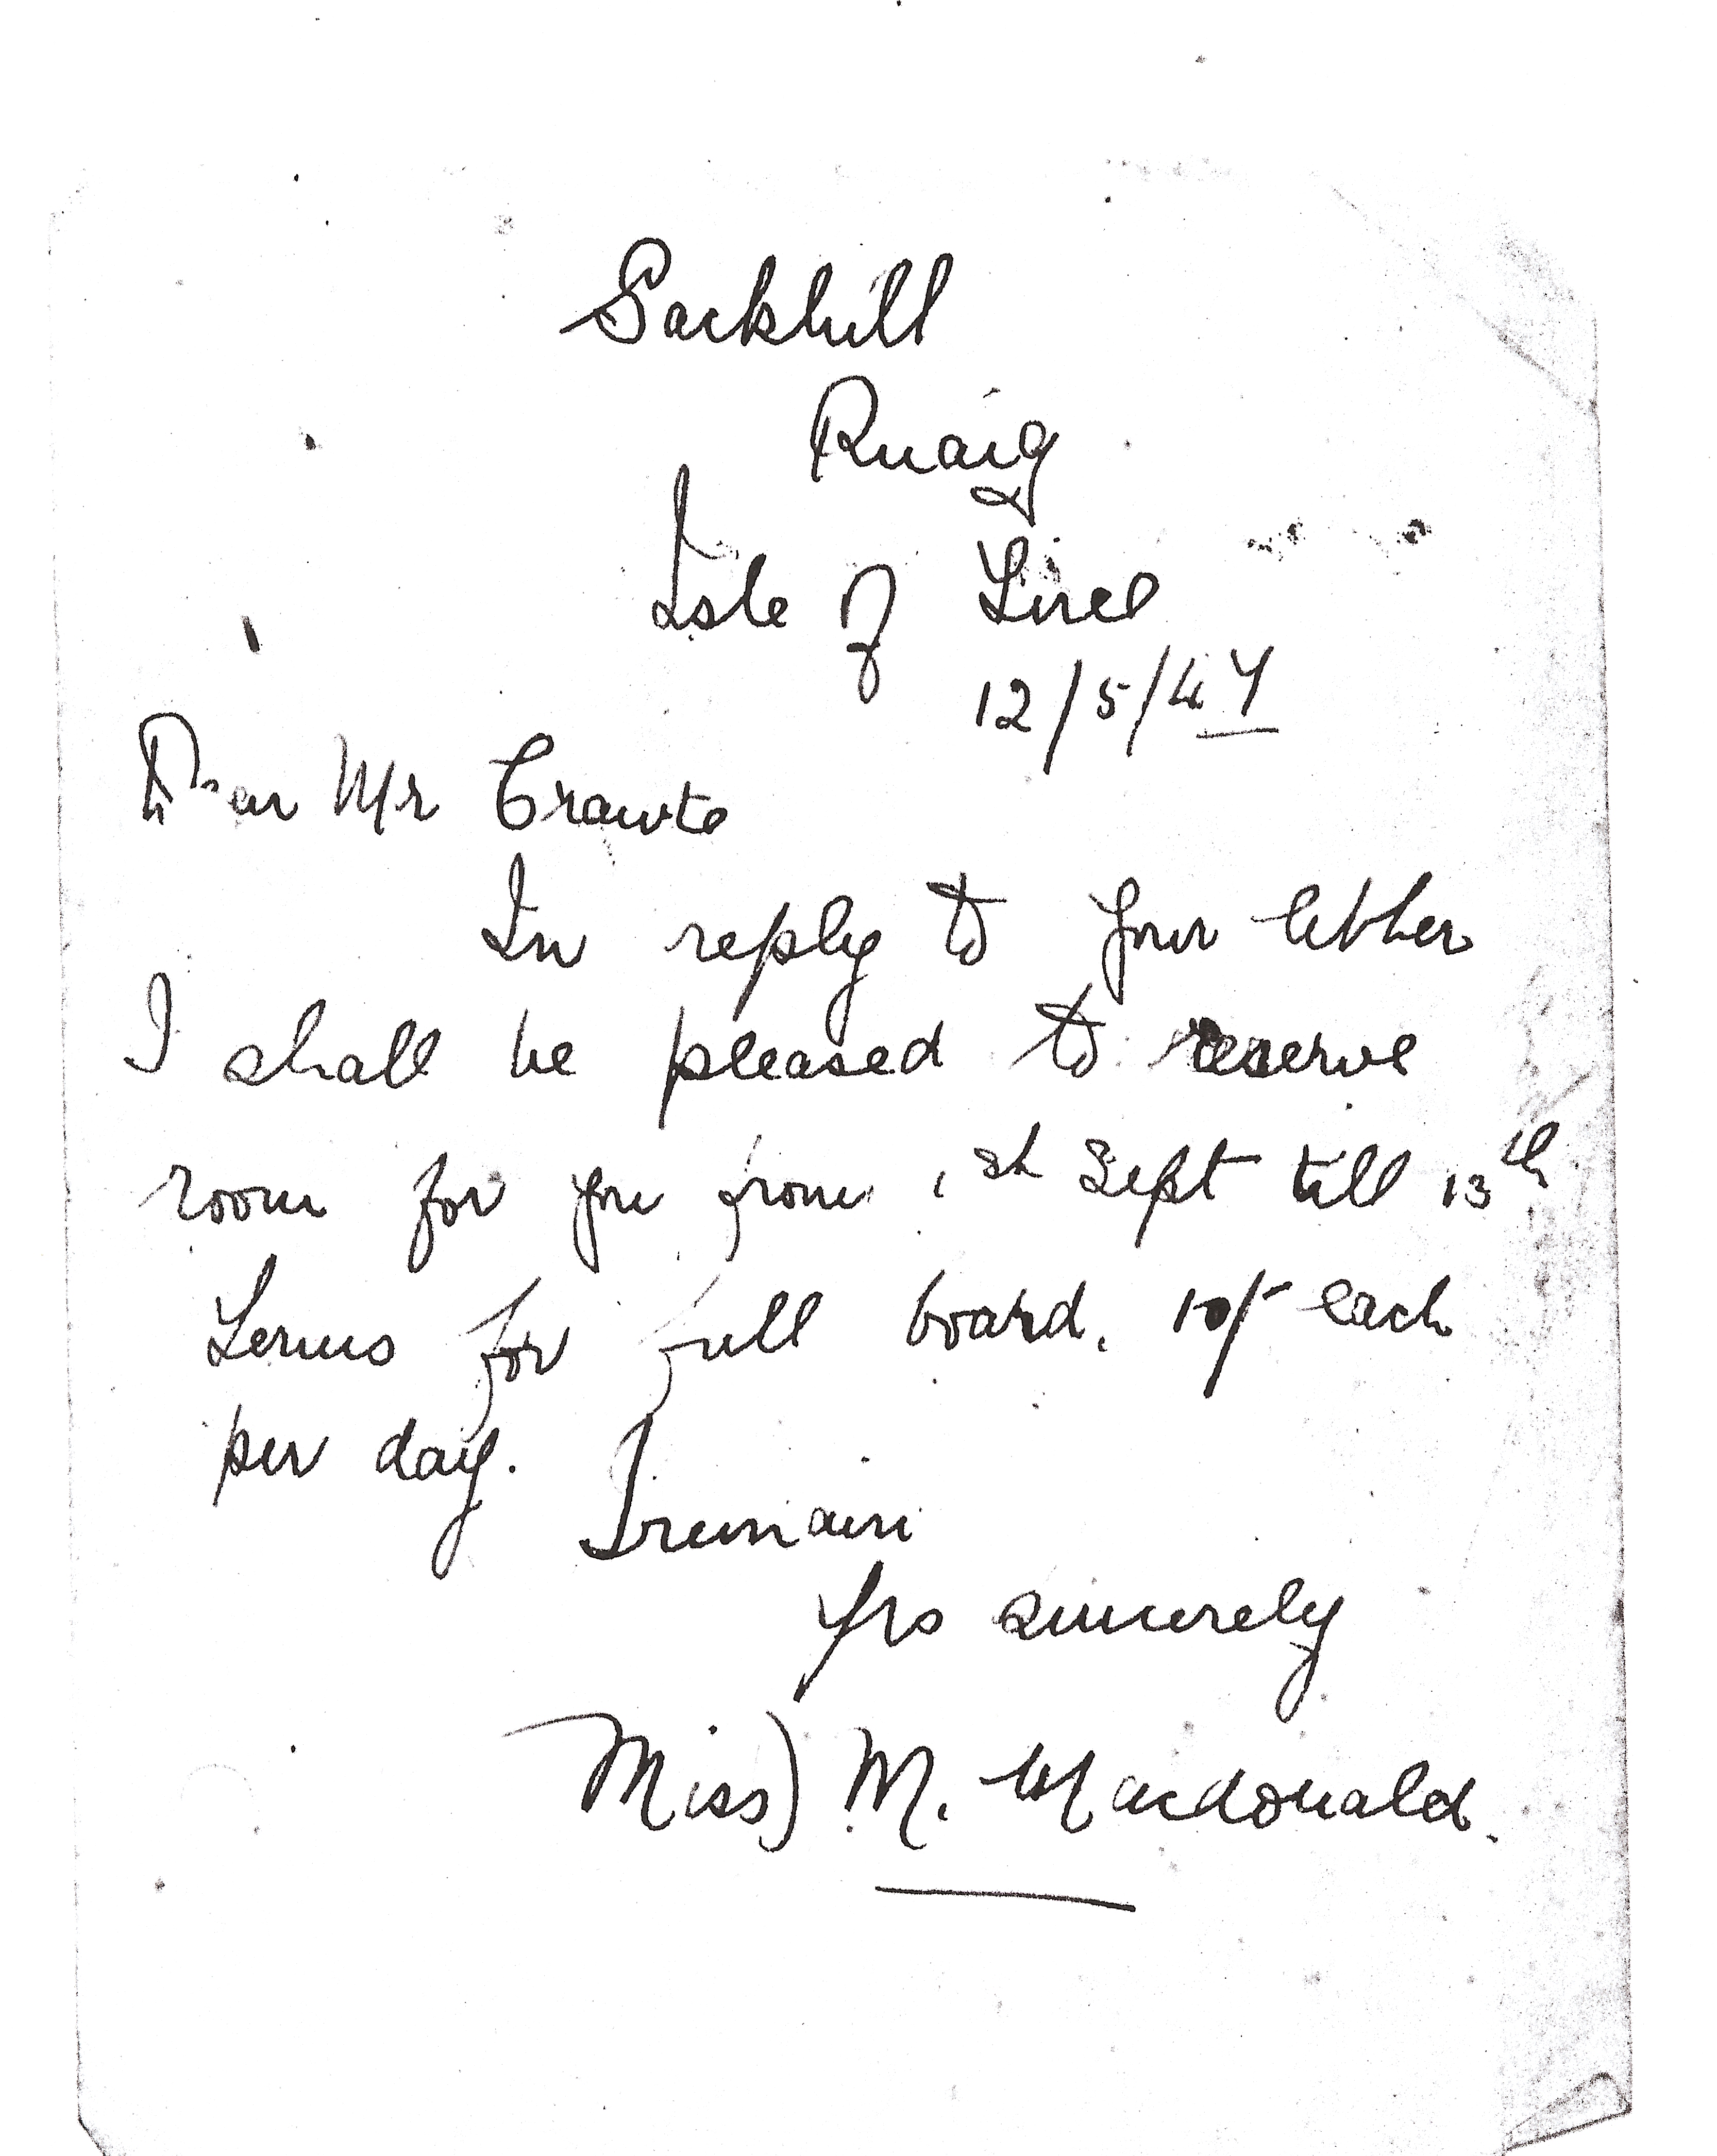 Sackhill
Ruaig
Isle of Tiree
12/5/47
Dear Mr Crawte
In reply to your letter
I shall be pleased to reserve
room for you from 1st Sept till 13th
Terms for full board. 10/- each
per day.
I remain
Yrs sincerely
Miss) M. Macdonald.